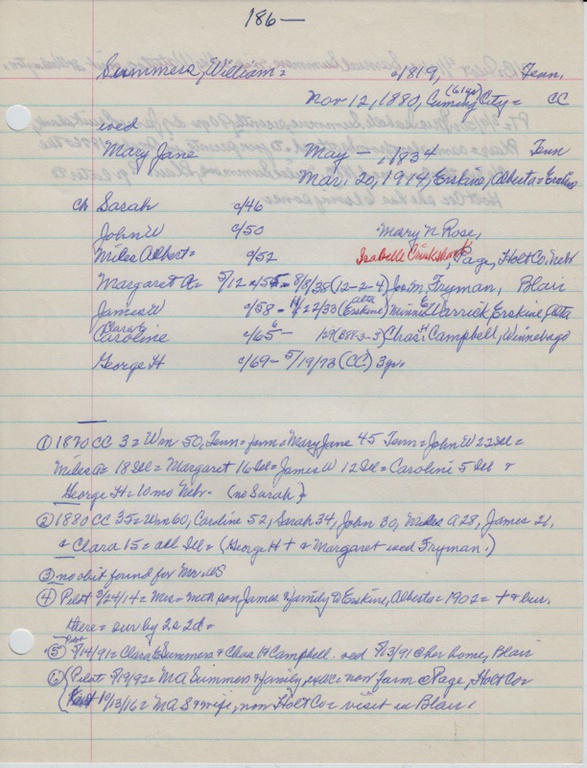 186—
Summers, William = c/1819, Tenn,
Nov 12, 1880, (61 yr) Cuming City = CC
wed
Mary Jane May — c/1834 Tenn
Mar, 20, 1914, Erskine, Alberta = Erskine
ch Sarah c/46
John W c/50 Mary N Rose,
Miles Albert = c/52 Isabelle Cruikshank, Page, Holt Co, Neb
Margaret A = 5/12 = c/55 = 8/8/38 (12-2-4) Jos M. Fryman, Blair
James W c/58 - 11/22/33 (Erskine) alta Minnie E Warrick Erskine, Alta
Clara E
Caroline c/65 - Chas H Campbell, Winnebago
George H c/69 - 5/19/73 (CC) 3 yrs
① 1870 CC 3 = Wm 50, Tenn = farm = Mary Jane 45 Tenn = John W 22 Ill =
Miles A = 18 Ill = Margaret 16 Ill = James W 12 Ill = Caroline 5 Ill +
George H = 10 mo Nebr. (no Sarah)
② 1880 CC 35 = Wm 60, Caroline 52, Sarah 34, John 30, Miles A 28, James 21,
& Clara 15 = all Ill = (George H + & Margaret wed Fryman.)
③ no obit found for Mr. WS
④ Pilot 9/24/14 = Mrs = with son James & family to Erskine, Alberta = 1902 = + & bur.
there = sur by 2s 2d =
⑤ Pilot 8/14/91 = Clara E Summers & Chas H Campbell wed 8/13/91 @ her home, Blair
⑥ Pilot 8/19/92 = MA Summers & family, ex CC = now farm @ Page, Holt Co =
10/13/16 = MA S & wife, now Holt Co = visit in Blair